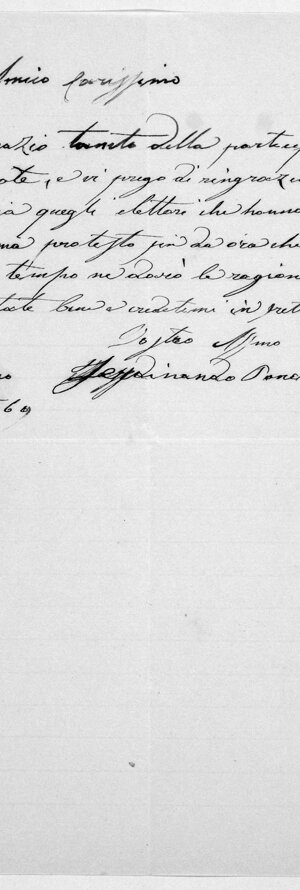 Amico Carissimo
razio tanto della partecip
ote, e vi prego di ringrazi
ia quegli elettori che hanno
ma protesto fin da ora che
tempo ne darò le ragion
tate bene e credetemi in fret
Vostro Affmo
Ferdinando